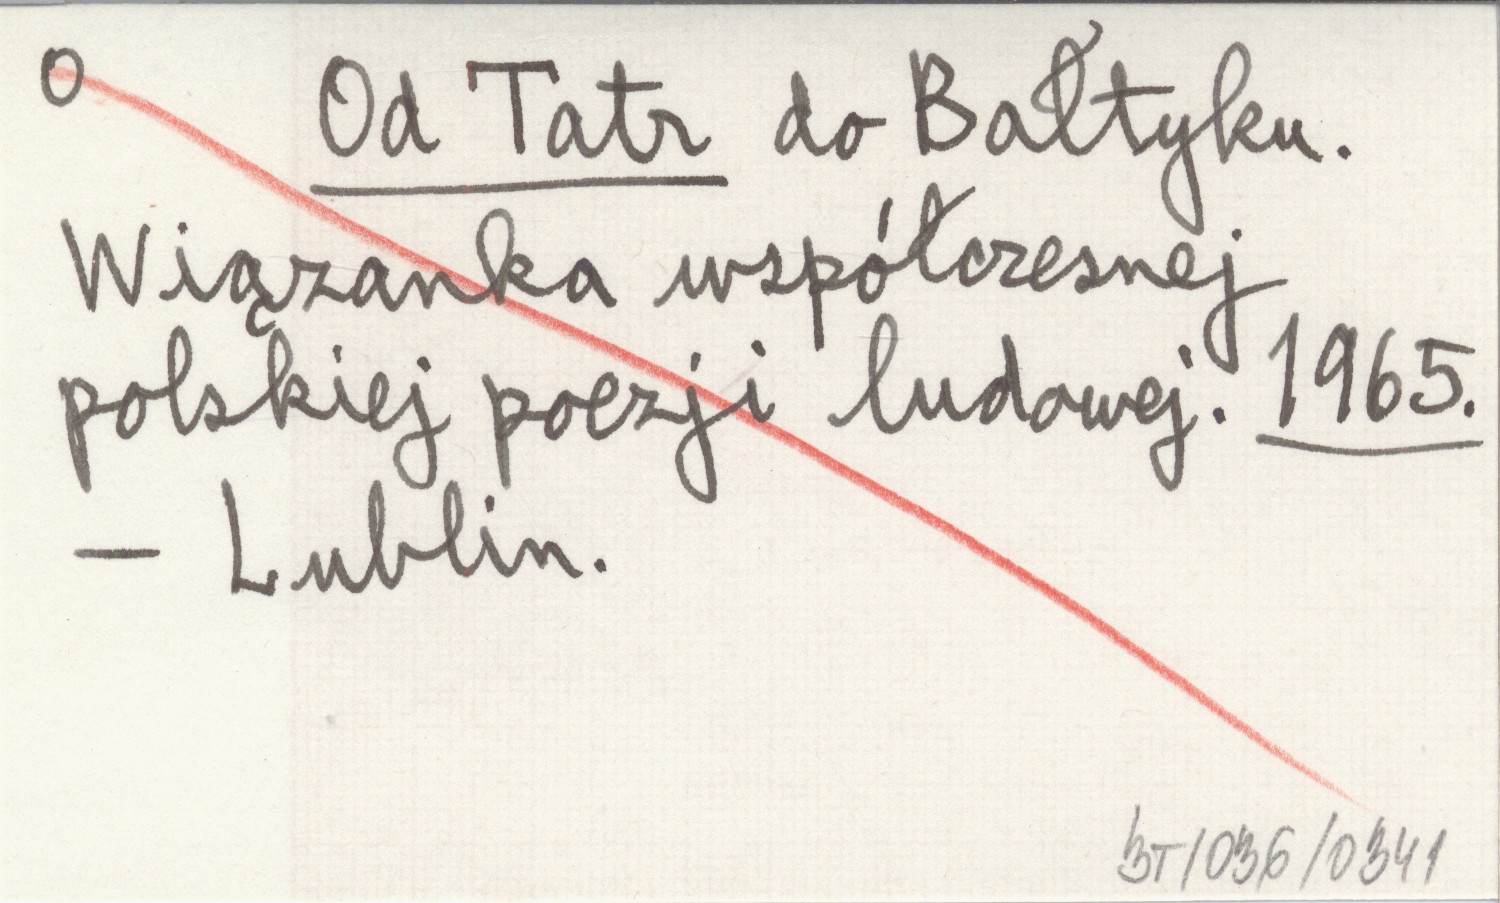 O Od Tatr do Bałtyku.
Wiązanka współczesnej
polskiej poezji ludowej. 1965.
— Lublin.
3T/036/0341